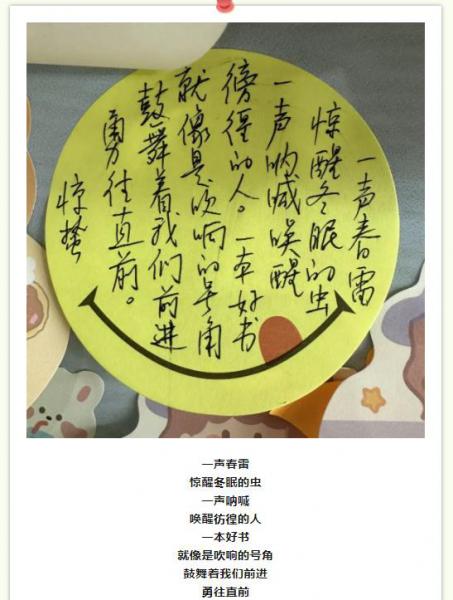 一声春雷
惊醒冬眠的虫
一声呐喊唤醒
徬徨的人。一本好书
就像是吹响的号角
鼓舞着我们前进
勇往直前。
惊蛰
一声春雷
惊醒冬眠的虫
一声呐喊
唤醒彷徨的人
一本好书
就像是吹响的号角
鼓舞着我们前进
勇往直前